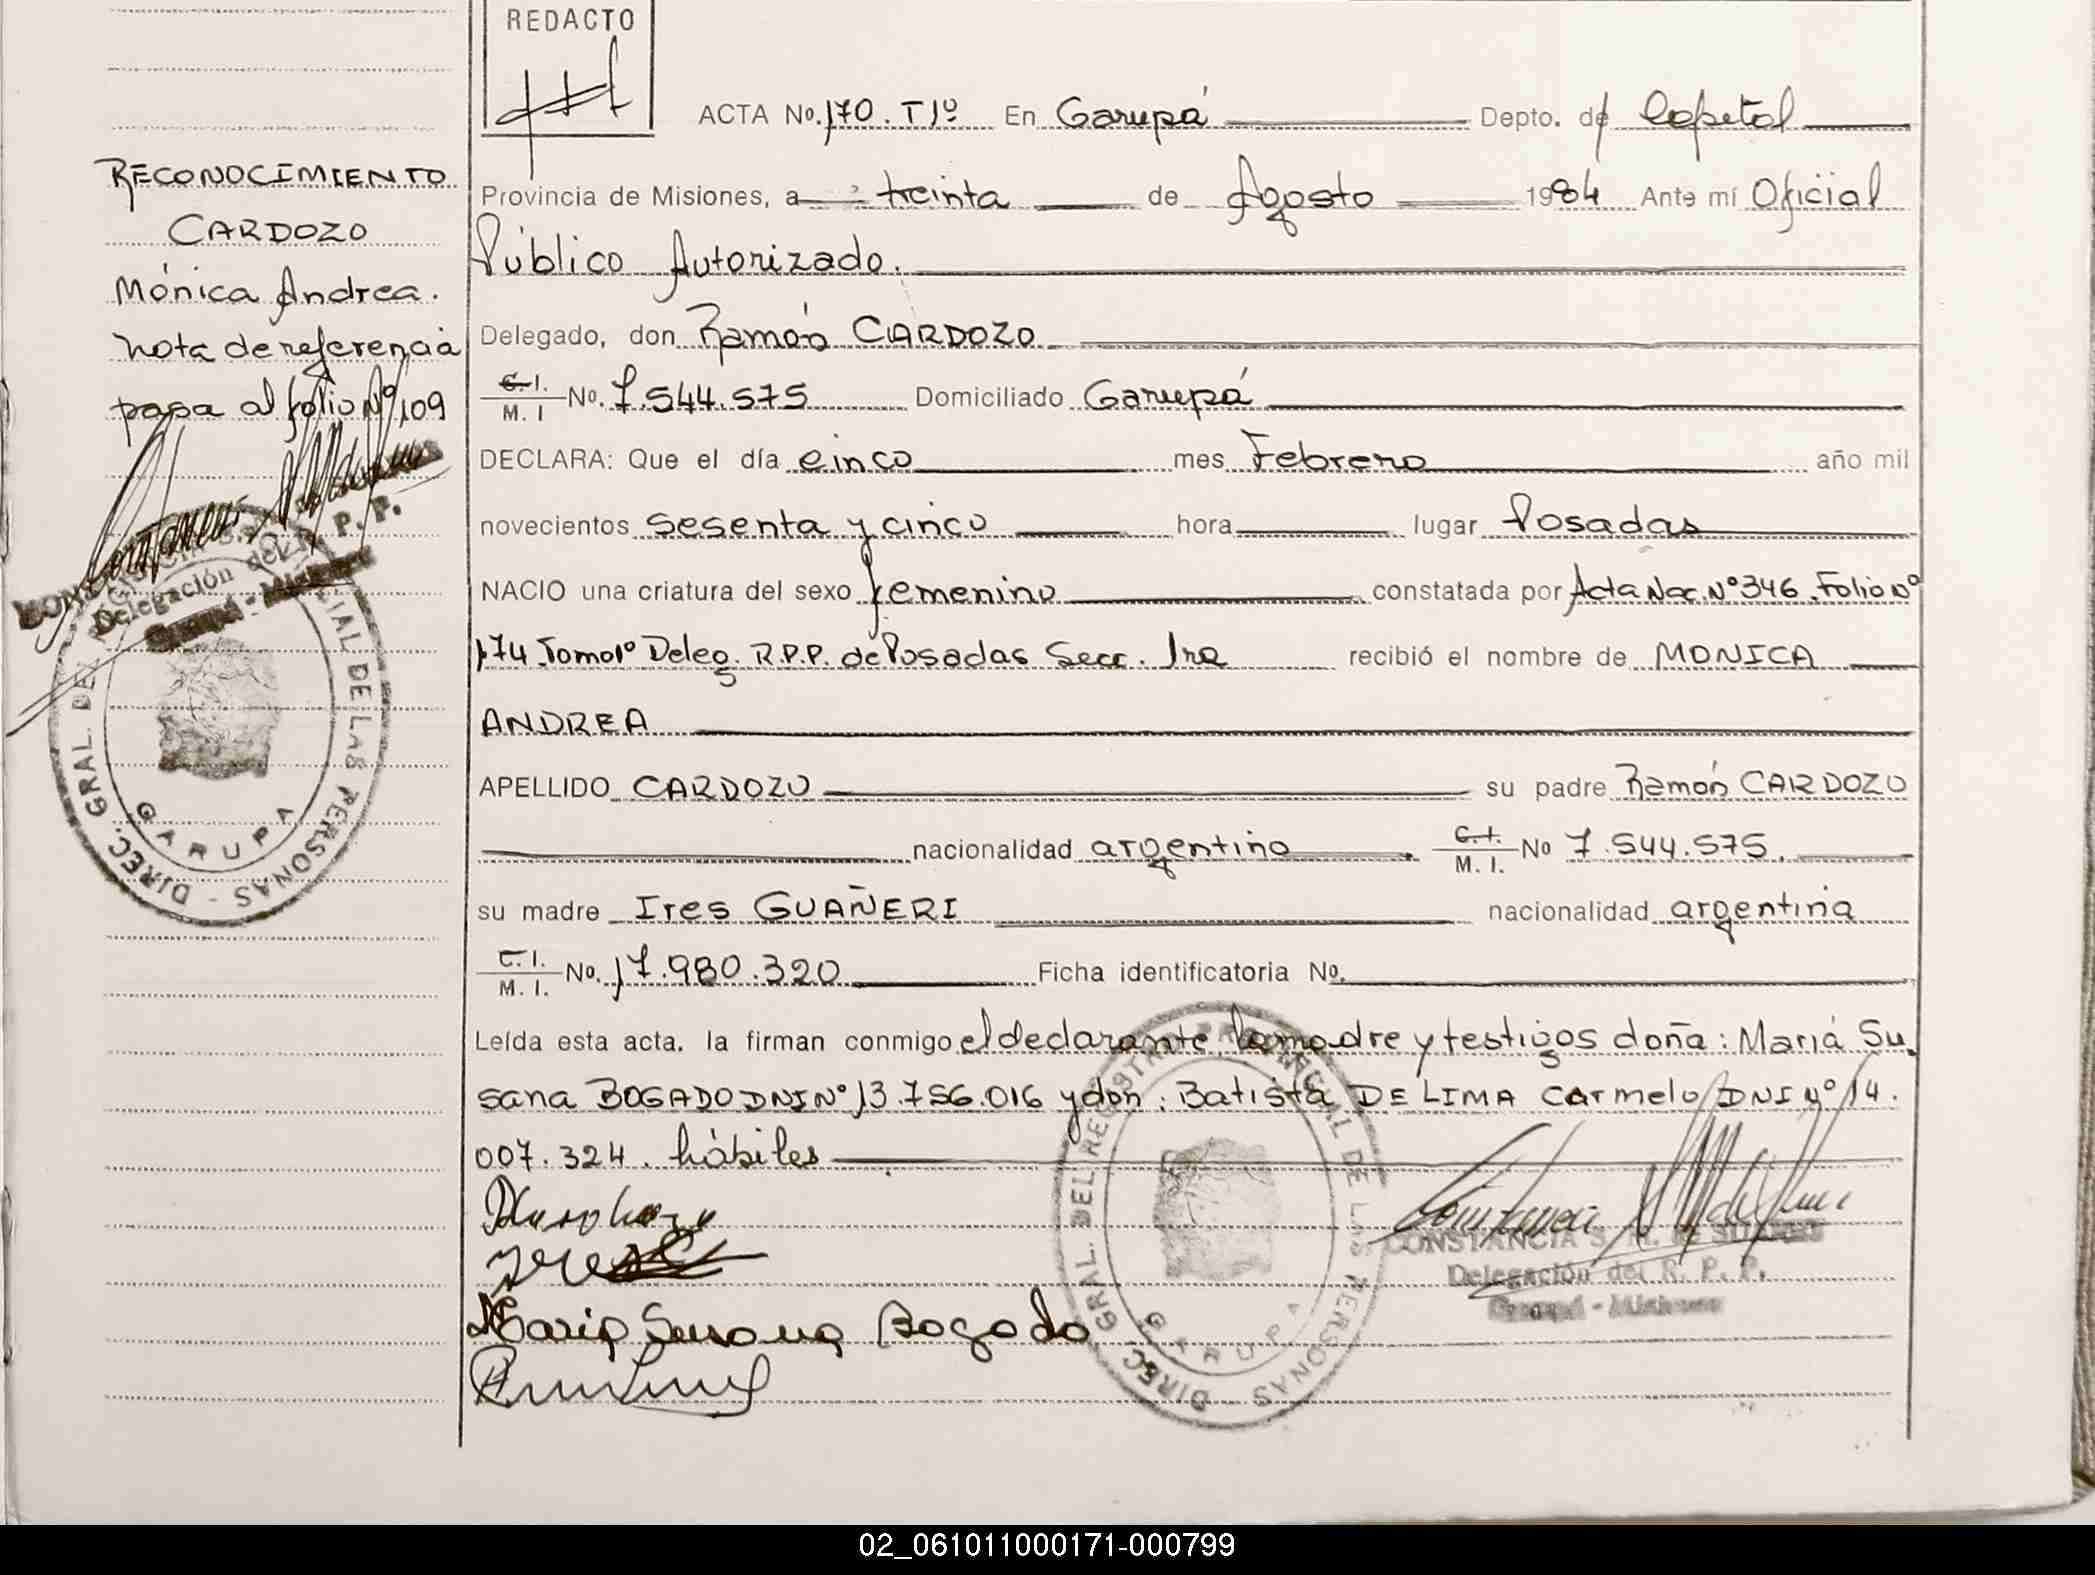 REDACTO
ACTA No. 170. T1º En Garupá Depto. de Capital
RECONOCIMIENTO
CARDOZO
Mónica Andrea.
nota de referencia
pasa al folio Nº 109
Provincia de Misiones, a treinta de Agosto 1984 Ante mí Oficial
Público Autorizado.
Delegado, don Ramón CARDOZO
C.I. M. I No. 7.544.575 Domiciliado Garupá
DECLARA: Que el día cinco mes Febrero año mil
novecientos sesenta y cinco hora lugar Posadas
NACIO una criatura del sexo femenino constatada por Acta Nac. Nº 346. Folio Nº
174 Tomo 1º Deleg. R.P.P. de Posadas Secc. 1ra recibió el nombre de MONICA
ANDREA
APELLIDO CARDOZO su padre Ramón CARDOZO
nacionalidad argentino C.I. M. I. No 7.544.575.
su madre Ires GUAÑERI nacionalidad argentina
C.I. M. I. No. 17.980.320 Ficha identificatoria No.
Leída esta acta. la firman conmigo el declarante, la madre y testigos doña: María Su
sana BOGADO DNI Nº 13.756.016 y don: Batista DE LIMA Carmelo DNI Nº 14.
007.324. hábiles
Maria Susana Bogado
CONSTANCIA S. M. de
Delegación del R. P. P.
Garupá - Misiones
Delegación del R. P. P.
Garupá - Misiones
DIREC. GRAL. DEL REGISTRO PROVINCIAL DE LAS PERSONAS
GARUPA
DIREC. GRAL. DEL REGISTRO PROVINCIAL DE LAS PERSONAS
GARUPA
02_061011000171-000799